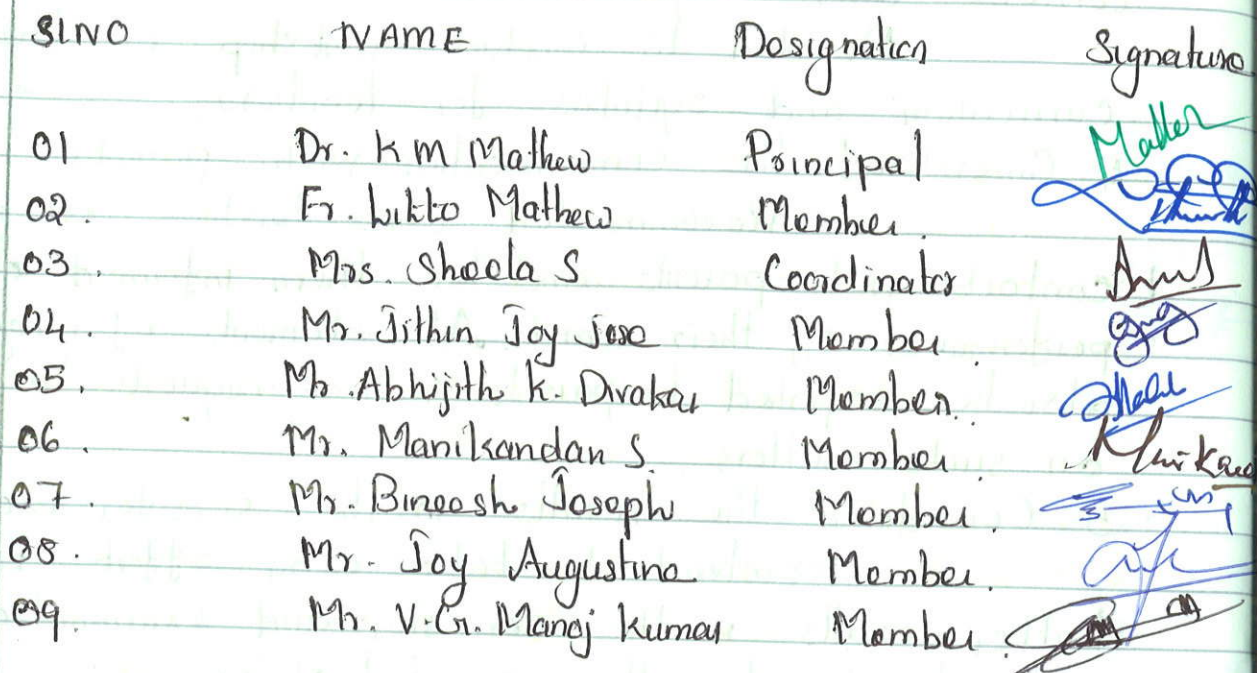 SLNO NAME Designation Signature
01 Dr. K M Mathew Principal
02. Fr. Litto Mathew Member.
03. Mrs. Sheela S Coordinator
04. Mr. Jithin Joy Jose Member.
05. Mr. Abhijith K. Divakar Member.
06. Mr. Manikandan S. Member.
07. Mr. Bineesh Joseph Member.
08. Mr. Joy Augustine Member.
09. Mr. V.G. Manoj Kumar Member.